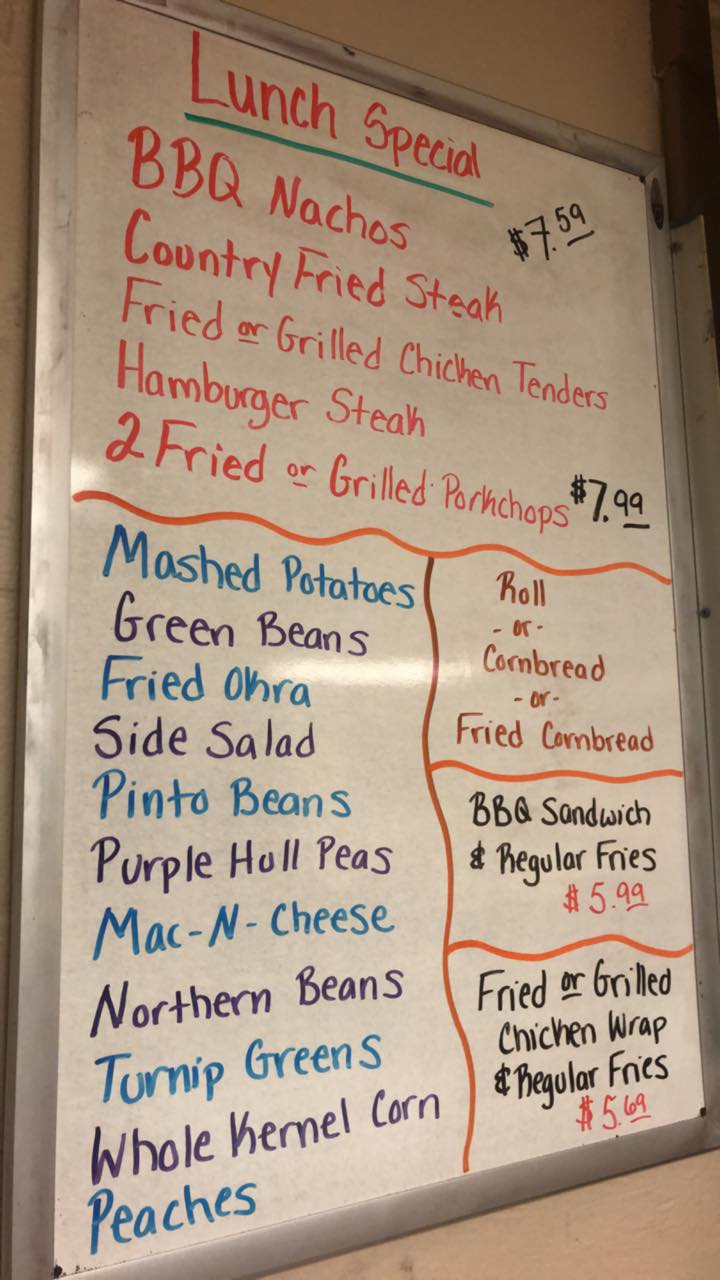 Lunch Special
BBQ Nachos
$7.59
Country Fried Steak
Fried or Grilled Chicken Tenders
Hamburger Steak
2 Fried or Grilled Porkchops $7.99
Mashed Potatoes
Green Beans
Fried Okra
Side Salad
Pinto Beans
Purple Hull Peas
Mac-N-Cheese
Northern Beans
Turnip Greens
Whole Kernel Corn
Peaches
Roll
-or-
Cornbread
-or-
Fried Cornbread
BBQ Sandwich
& Regular Fries
$5.99
Fried or Grilled
Chicken Wrap
& Regular Fries
$5.69